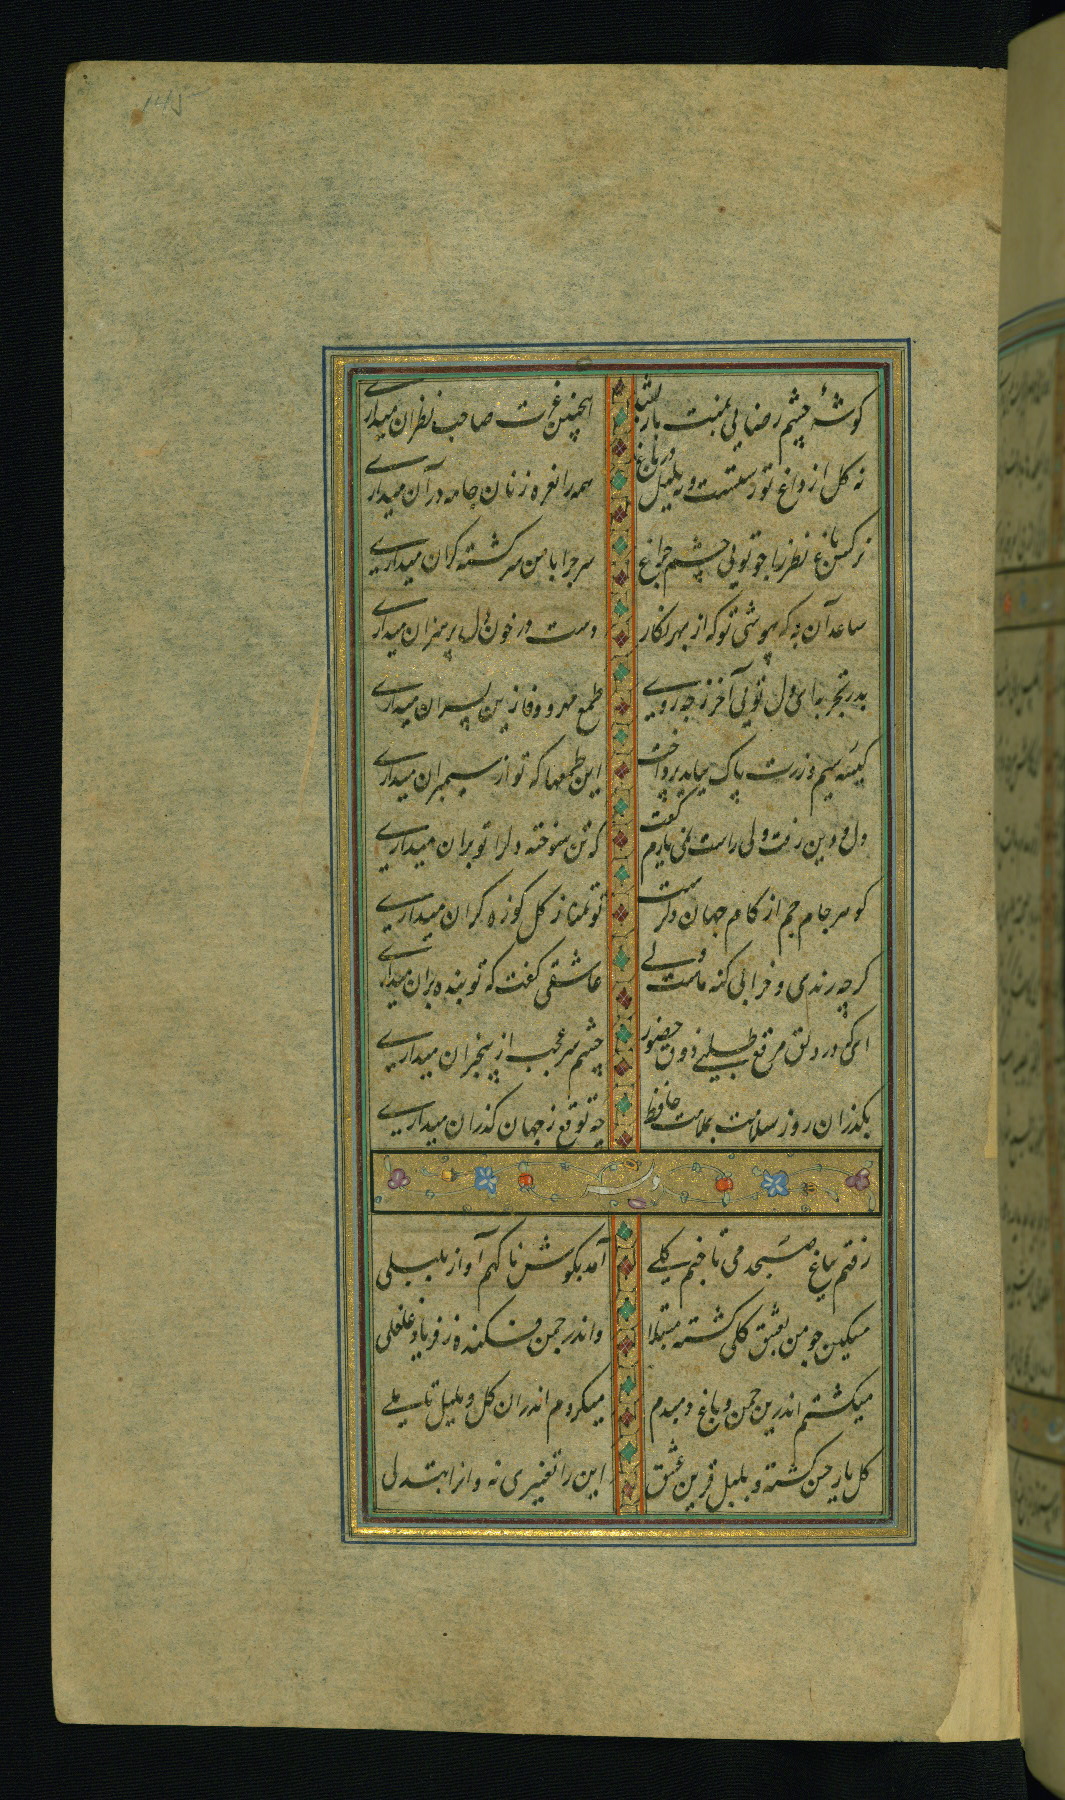 ۱۴۵
گوشهٔ چشم رضایی بمنت باز نشد
اینچنین عزت صاحب نظران میداری
نه گل از داغ تو رستست و نه بلبل در باغ
همه را نعره زنان جامه دران میداری
نرگس باغ نظر را چو تویی چشم چراغ
سر چرا با من سرگشته گران میداری
ساعد آن به که بپوشی تو که از بهر نگار
دست در خون دل پر هنران میداری
پدر تجربه ای دل تویی آخر ز چه روی
طمع مهر و وفا زین پسران میداری
کیسه سیم و زرت پاک بباید پرداخت
این طمعها که تو از سیمبران میداری
دل و دین رفت ولی راست نمی یارم گفت
که تن سوخته دل را تو بران میداری
گوهر جام جم از کام جهان دگرست
تو تمنا ز گل کوزه گران میداری
گرچه رندی و خرابی گنه ماست ولی
عاشقی گفت که تو بنده بران میداری
ای که در دلق مرقع طلبی ذوق حضور
چشم سر عجب از بیخبران میداری
بگذران روز سلامت بملامت حافظ
چه توقع ز جهان گذران میداری
رفتم بباغ صبحدمی تا چنم گلی
آمد بگوش ناگهم آواز بلبلی
مسکین چو من بعشق گلی گشته مبتلا
واندر چمن فکنده ز فریاد غلغلی
میگشتم اندرین چمن و باغ دمبدم
میکردم اندران گل و بلبل تاملی
گل یار حسن گشته و بلبل قرین عشق
این را تغییری نه و آنرا تبدلی